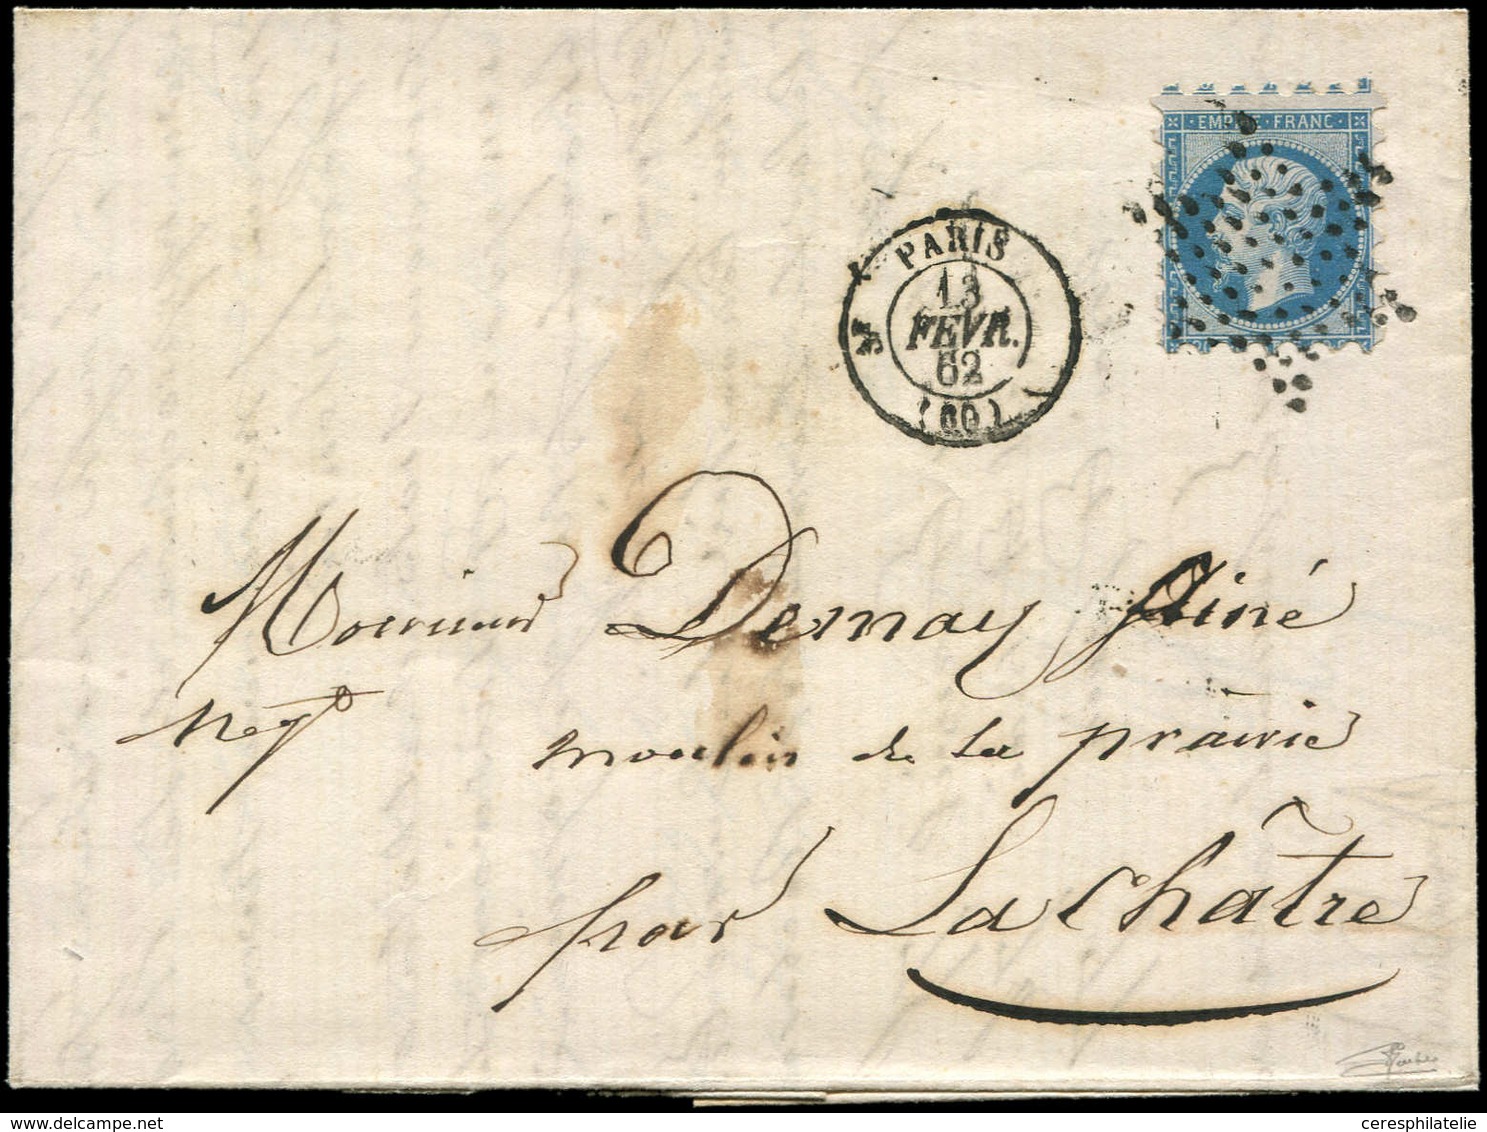 EMPIRE · FRANC
PARIS
13
FEVR.
62
(60)
Monsieur Dernay Aîné
Negt
moulin de la prairie
par La châtre
www.delcampe.net
ceresphilatelie